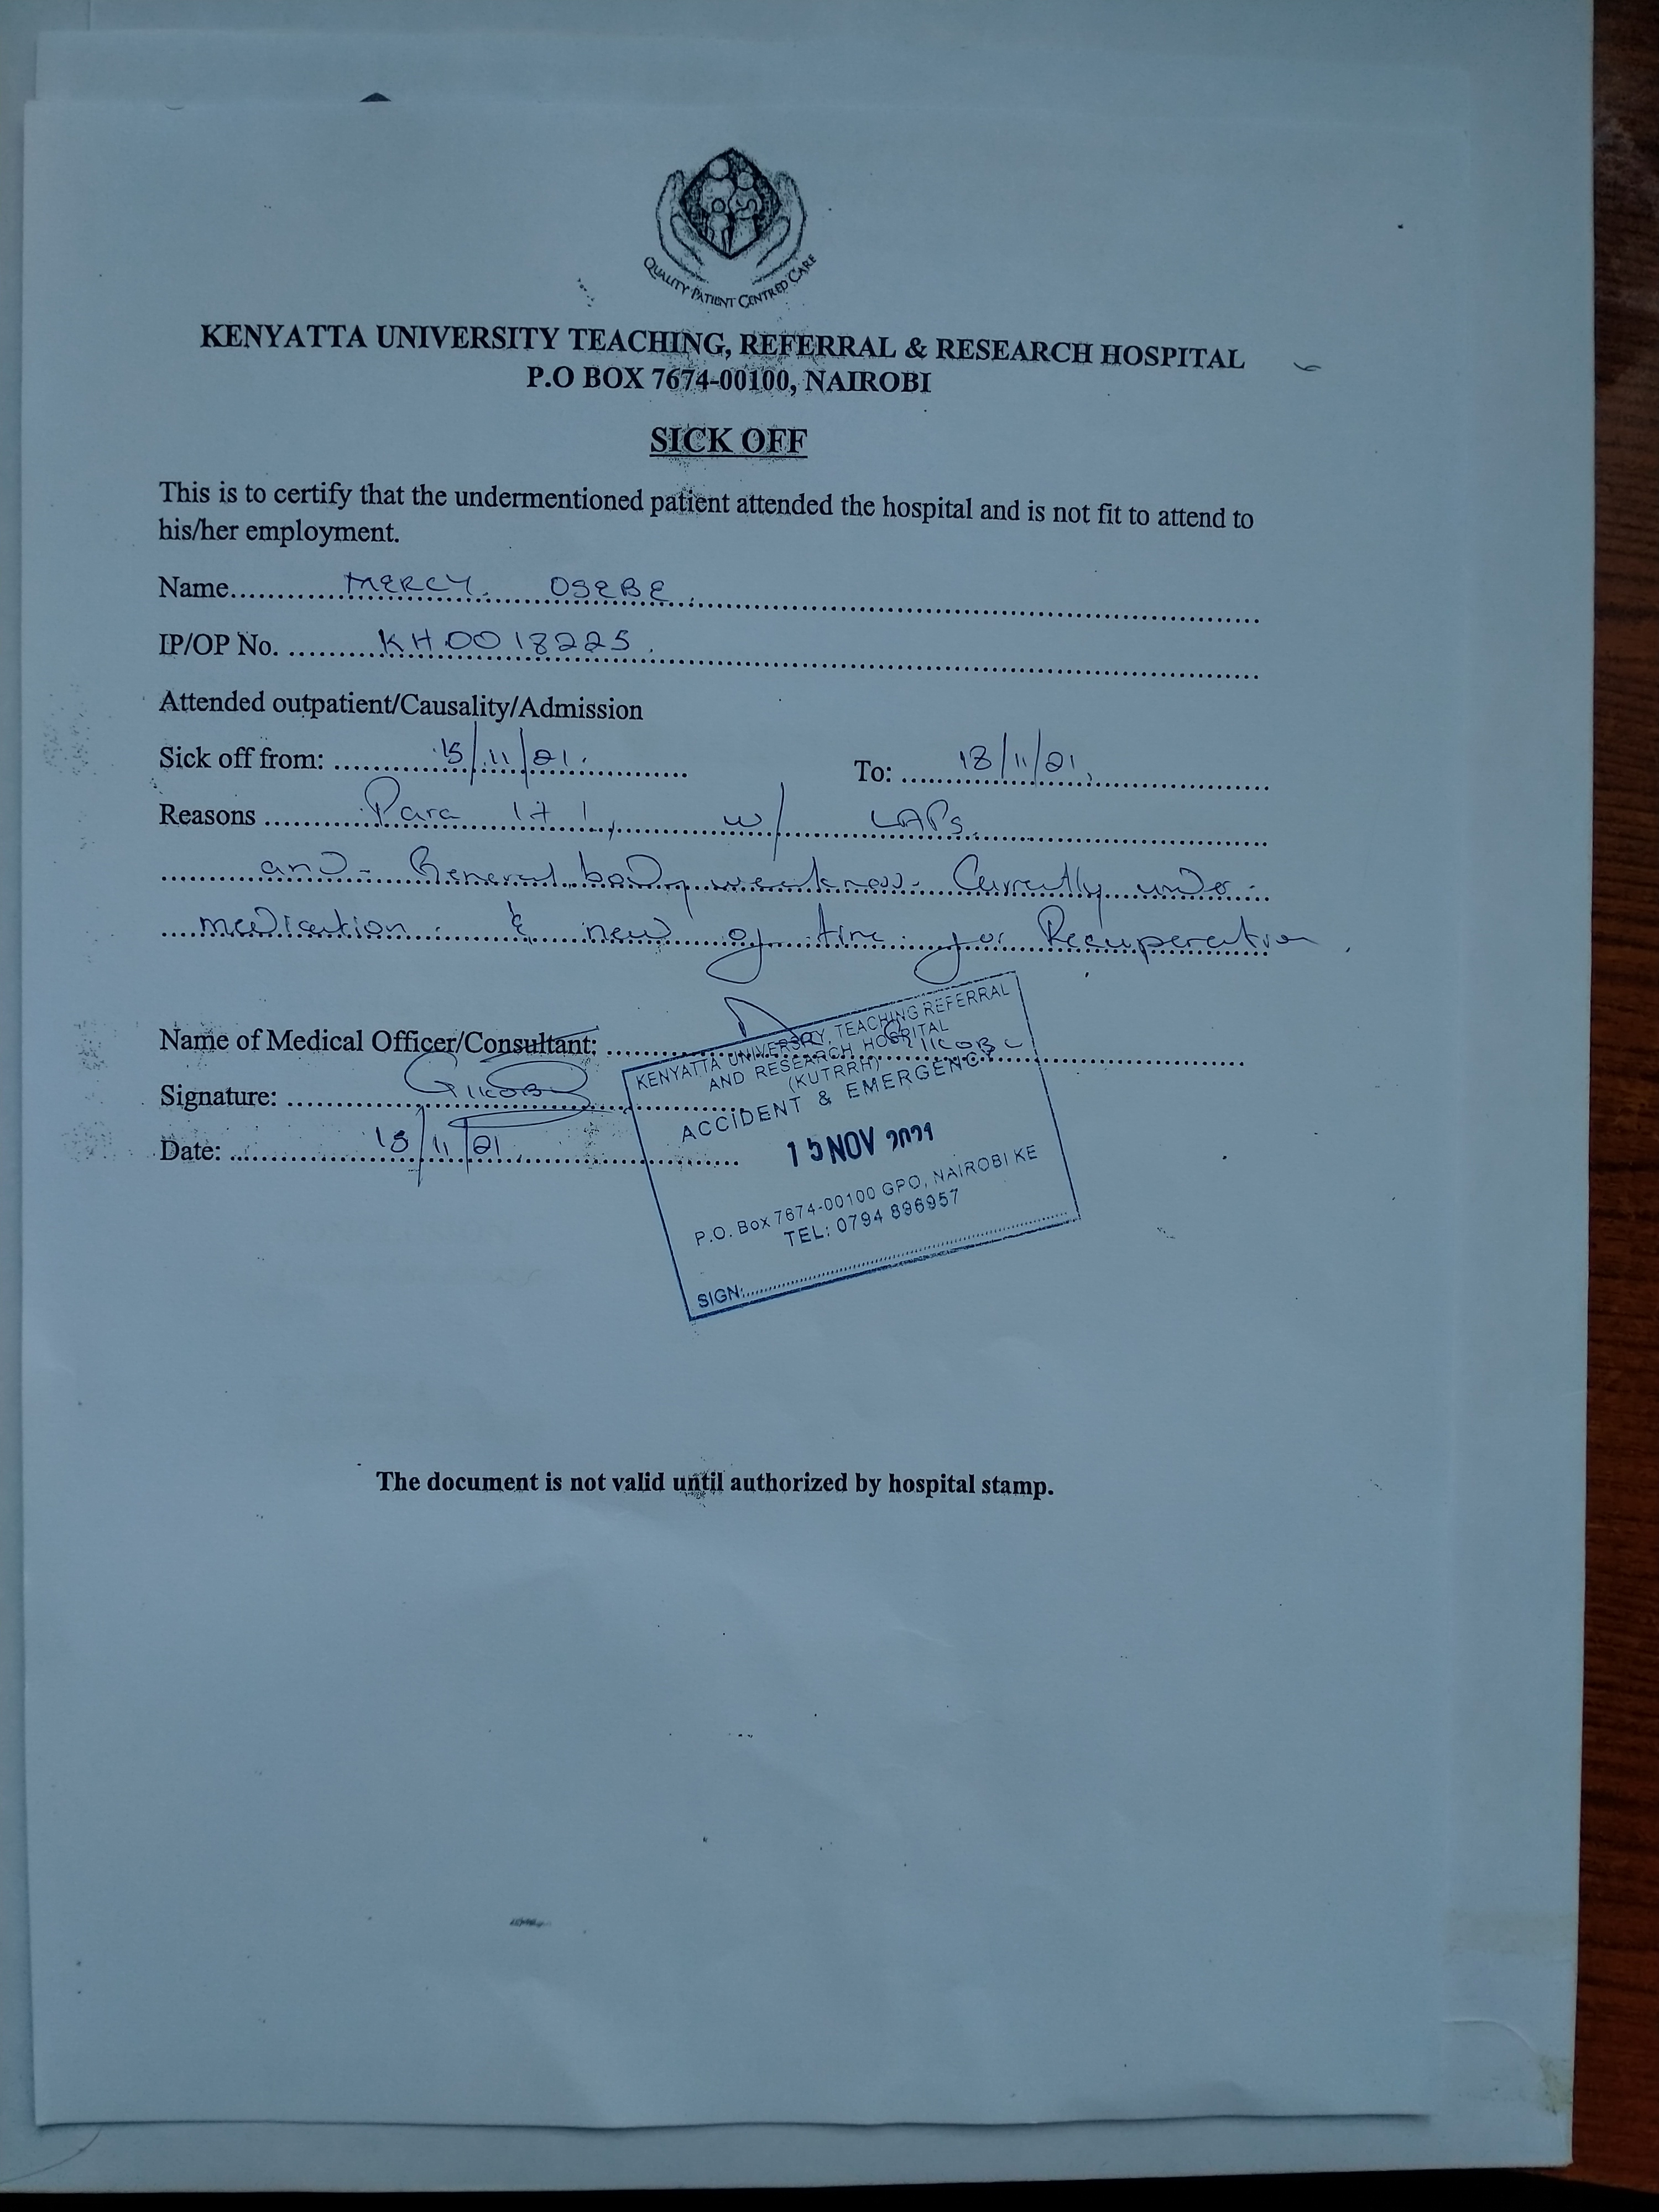 QUALITY PATIENT CENTRED CARE
KENYATTA UNIVERSITY TEACHING, REFERRAL & RESEARCH HOSPITAL
P.O BOX 7674-00100, NAIROBI
SICK OFF
This is to certify that the undermentioned patient attended the hospital and is not fit to attend to
his/her employment.
Name MERCY OSEBE
IP/OP No. KH0018225
Attended outpatient/Causality/Admission
Sick off from: 15/11/21. To: 18/11/21
Reasons Para 1+1, w/ LAPs
and General body weakness. Currently under
medication & need of time for Recuperation
Name of Medical Officer/Consultant:
Signature:
Date: 15/11/21
KENYATTA UNIVERSITY, TEACHING REFERRAL
AND RESEARCH HOSPITAL
(KUTRRH)
ACCIDENT & EMERGENCY
15 NOV 2021
P.O. Box 7674-00100 GPO, NAIROBI KE
TEL: 0794 896957
SIGN:
The document is not valid until authorized by hospital stamp.